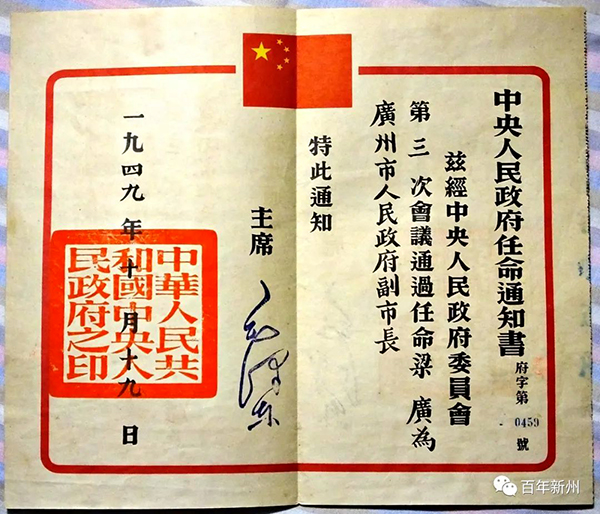 中央人民政府任命通知書
府字第0459號
茲經中央人民政府委員會
第三次會議通過任命梁廣為
廣州市人民政府副市長
特此通知
主席
毛澤東
一九四九年十月十九日
中華人民共
和國中央人
民政府之印
百年新州